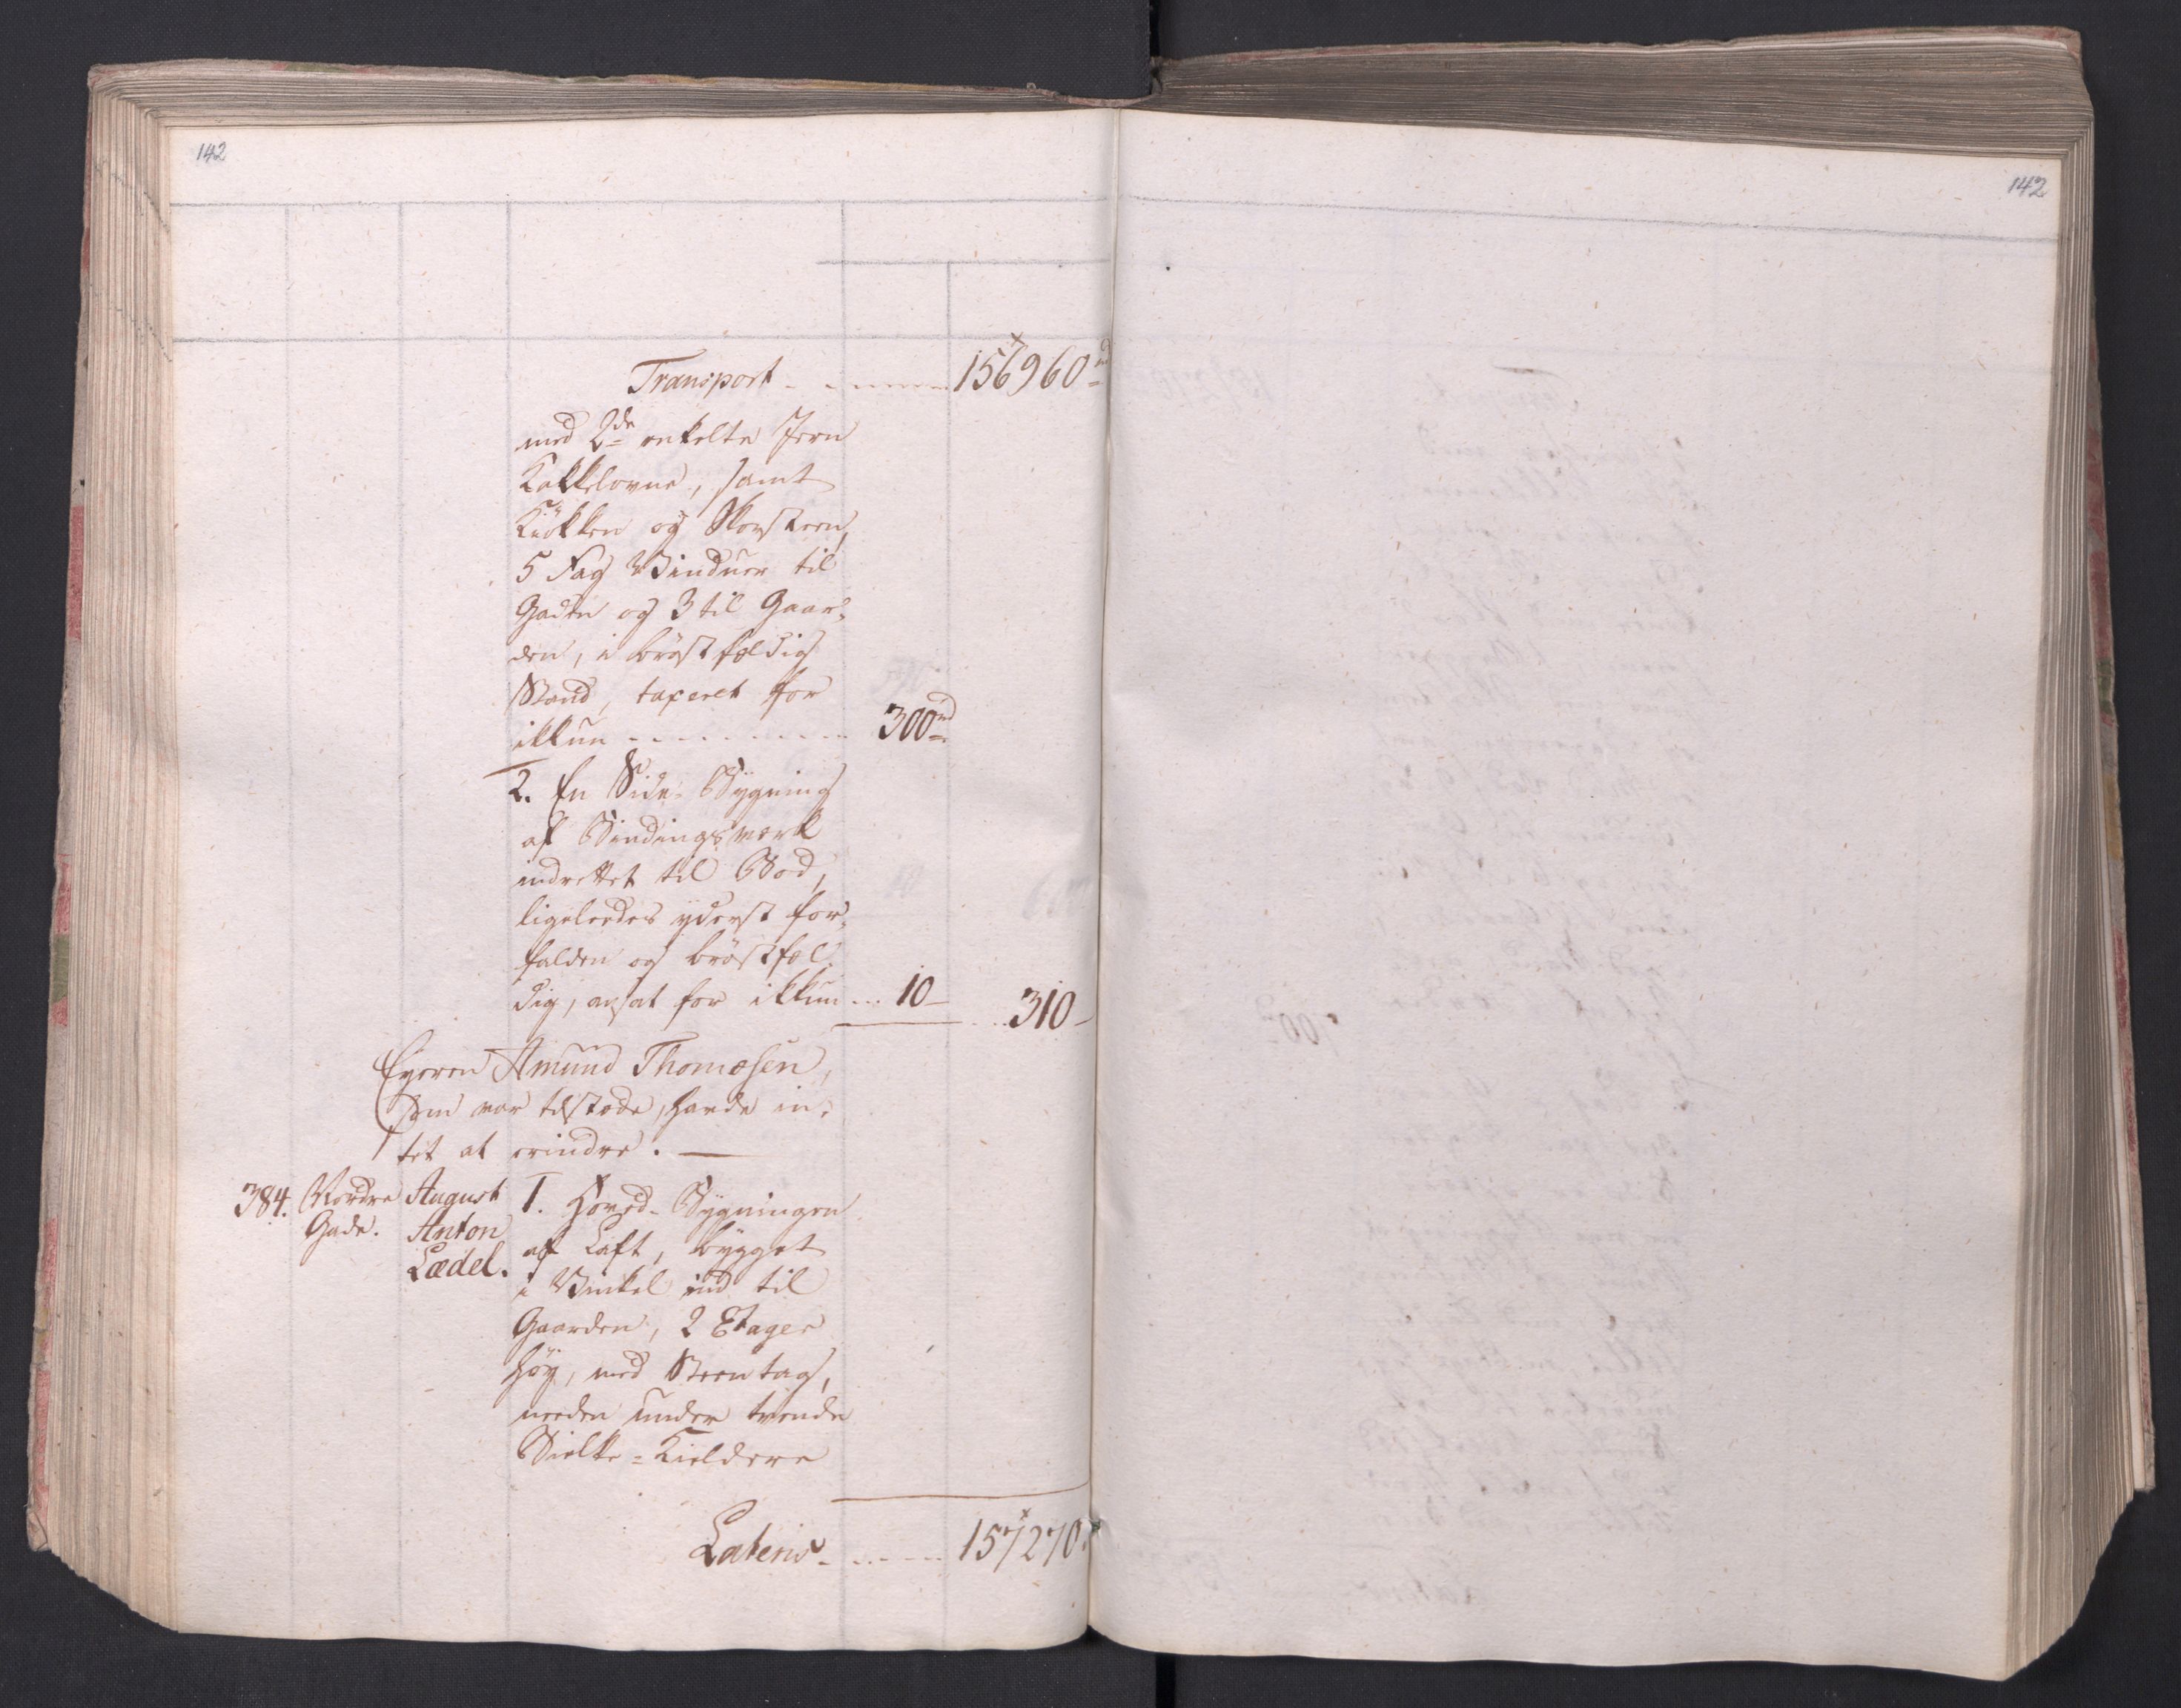 142
142
Transport - - - - - 156960 rd
med 2de enkelte Jern
Kakkelovne, samt
Kiökken og Skorsteen,
5 Fag Vinduer til
Gaden og 3 til Gaar-
den, i bröstfældig
Stand, taxeret for
ikkun - - - - - - - - 300 rd
2. En Side-Bygning
af Bindingsverk
indrettet til Bod,
ligeledes yderst for-
falden og bröstfæl-
dig, ansat for ikkun ... 10 - ... 310 -
Eyeren Amund Thomesen,
som var tilstæde, havde in-
tet at erindre. —
384. Nordre August 1. Hoved-Bygningen
Gade. Anton af Laft, bygget
Lædel. i Vinkel ind til
Gaarden, 2 Etager
höy, med Steentag,
neden under tvende
Bielke-Kieldere
Lateris - - - - - 157270.